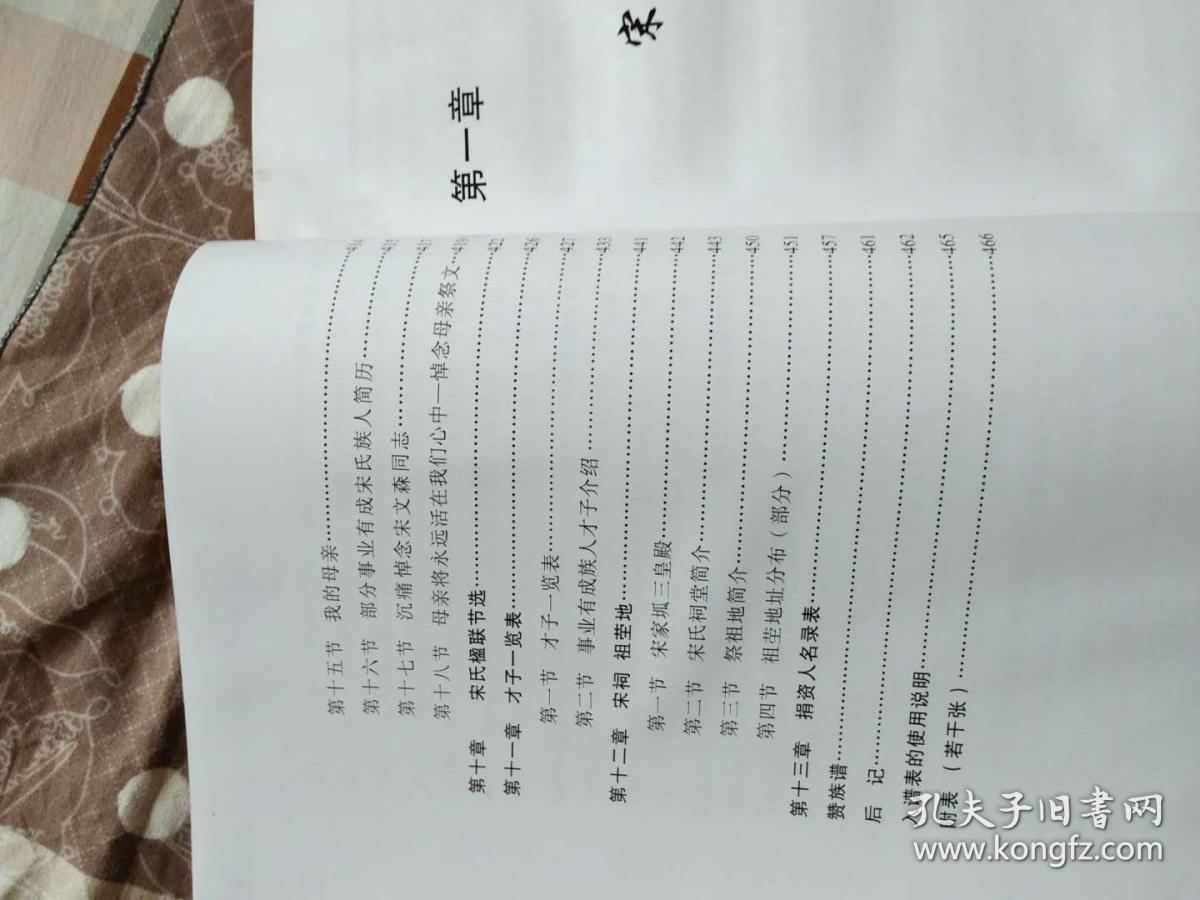 第十五节 我的母亲……414
第十六节 部分事业有成宋氏族人简历……
第十七节 沉痛悼念宋文森同志……417
第十八节 母亲将永远活在我们心中—悼念母亲祭文…419
第十章 宋氏楹联节选……422
第十一章 才子一览表……426
第一节 才子一览表……427
第二节 事业有成族人才子介绍……433
第十二章 宋祠 祖茔地……441
第一节 宋家坬三皇殿……442
第二节 宋氏祠堂简介……443
第三节 祭祖地简介……450
第四节 祖茔地址分布（部分）……451
第十三章 捐资人名录表……457
赞族谱……461
后 记……462
入谱表的使用说明……465
附表 （若干张）……466
第一章
宋
孔夫子旧书网
www.kongfz.com